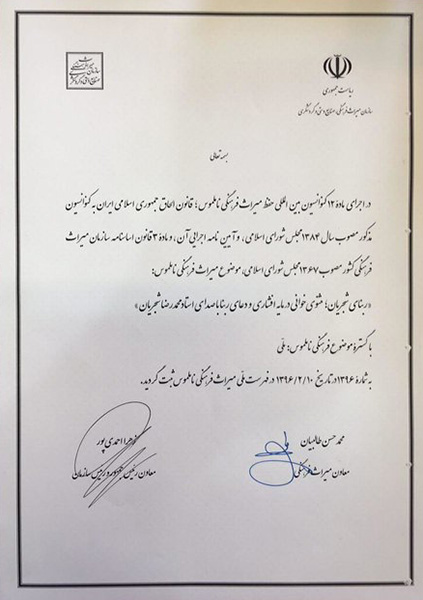 ریاست جمهوری
سازمان میراث فرهنگی، صنایع دستی و گردشگری
بسمه تعالی
در اجرای مادهٔ ۱۲ کنوانسیون بین المللی حفظ میراث فرهنگی ناملموس؛ قانون الحاق جمهوری اسلامی ایران به کنوانسیون
مذکور مصوب سال ۱۳۸۴ مجلس شورای اسلامی، و آیین نامه اجرایی آن، و مادهٔ ۳ قانون اساسنامه سازمان میراث
فرهنگی کشور مصوب ۱۳۶۷ مجلس شورای اسلامی، موضوع میراث فرهنگی ناملموس:
«ربنای شجریان؛ مثنوی خوانی در مایه افشاری و دعای ربنا با صدای استاد محمدرضا شجریان»
با گسترهٔ موضوع فرهنگی ناملموس: ملی
به شمارهٔ ۱۳۹۶ در تاریخ ۱۳۹۶/۲/۱۰ در فهرست ملی میراث فرهنگی ناملموس ثبت گردید.
محمد حسن طالبیان
معاون میراث فرهنگی
زهرا احمدی پور
معاون رئیس جمهور و رییس سازمان